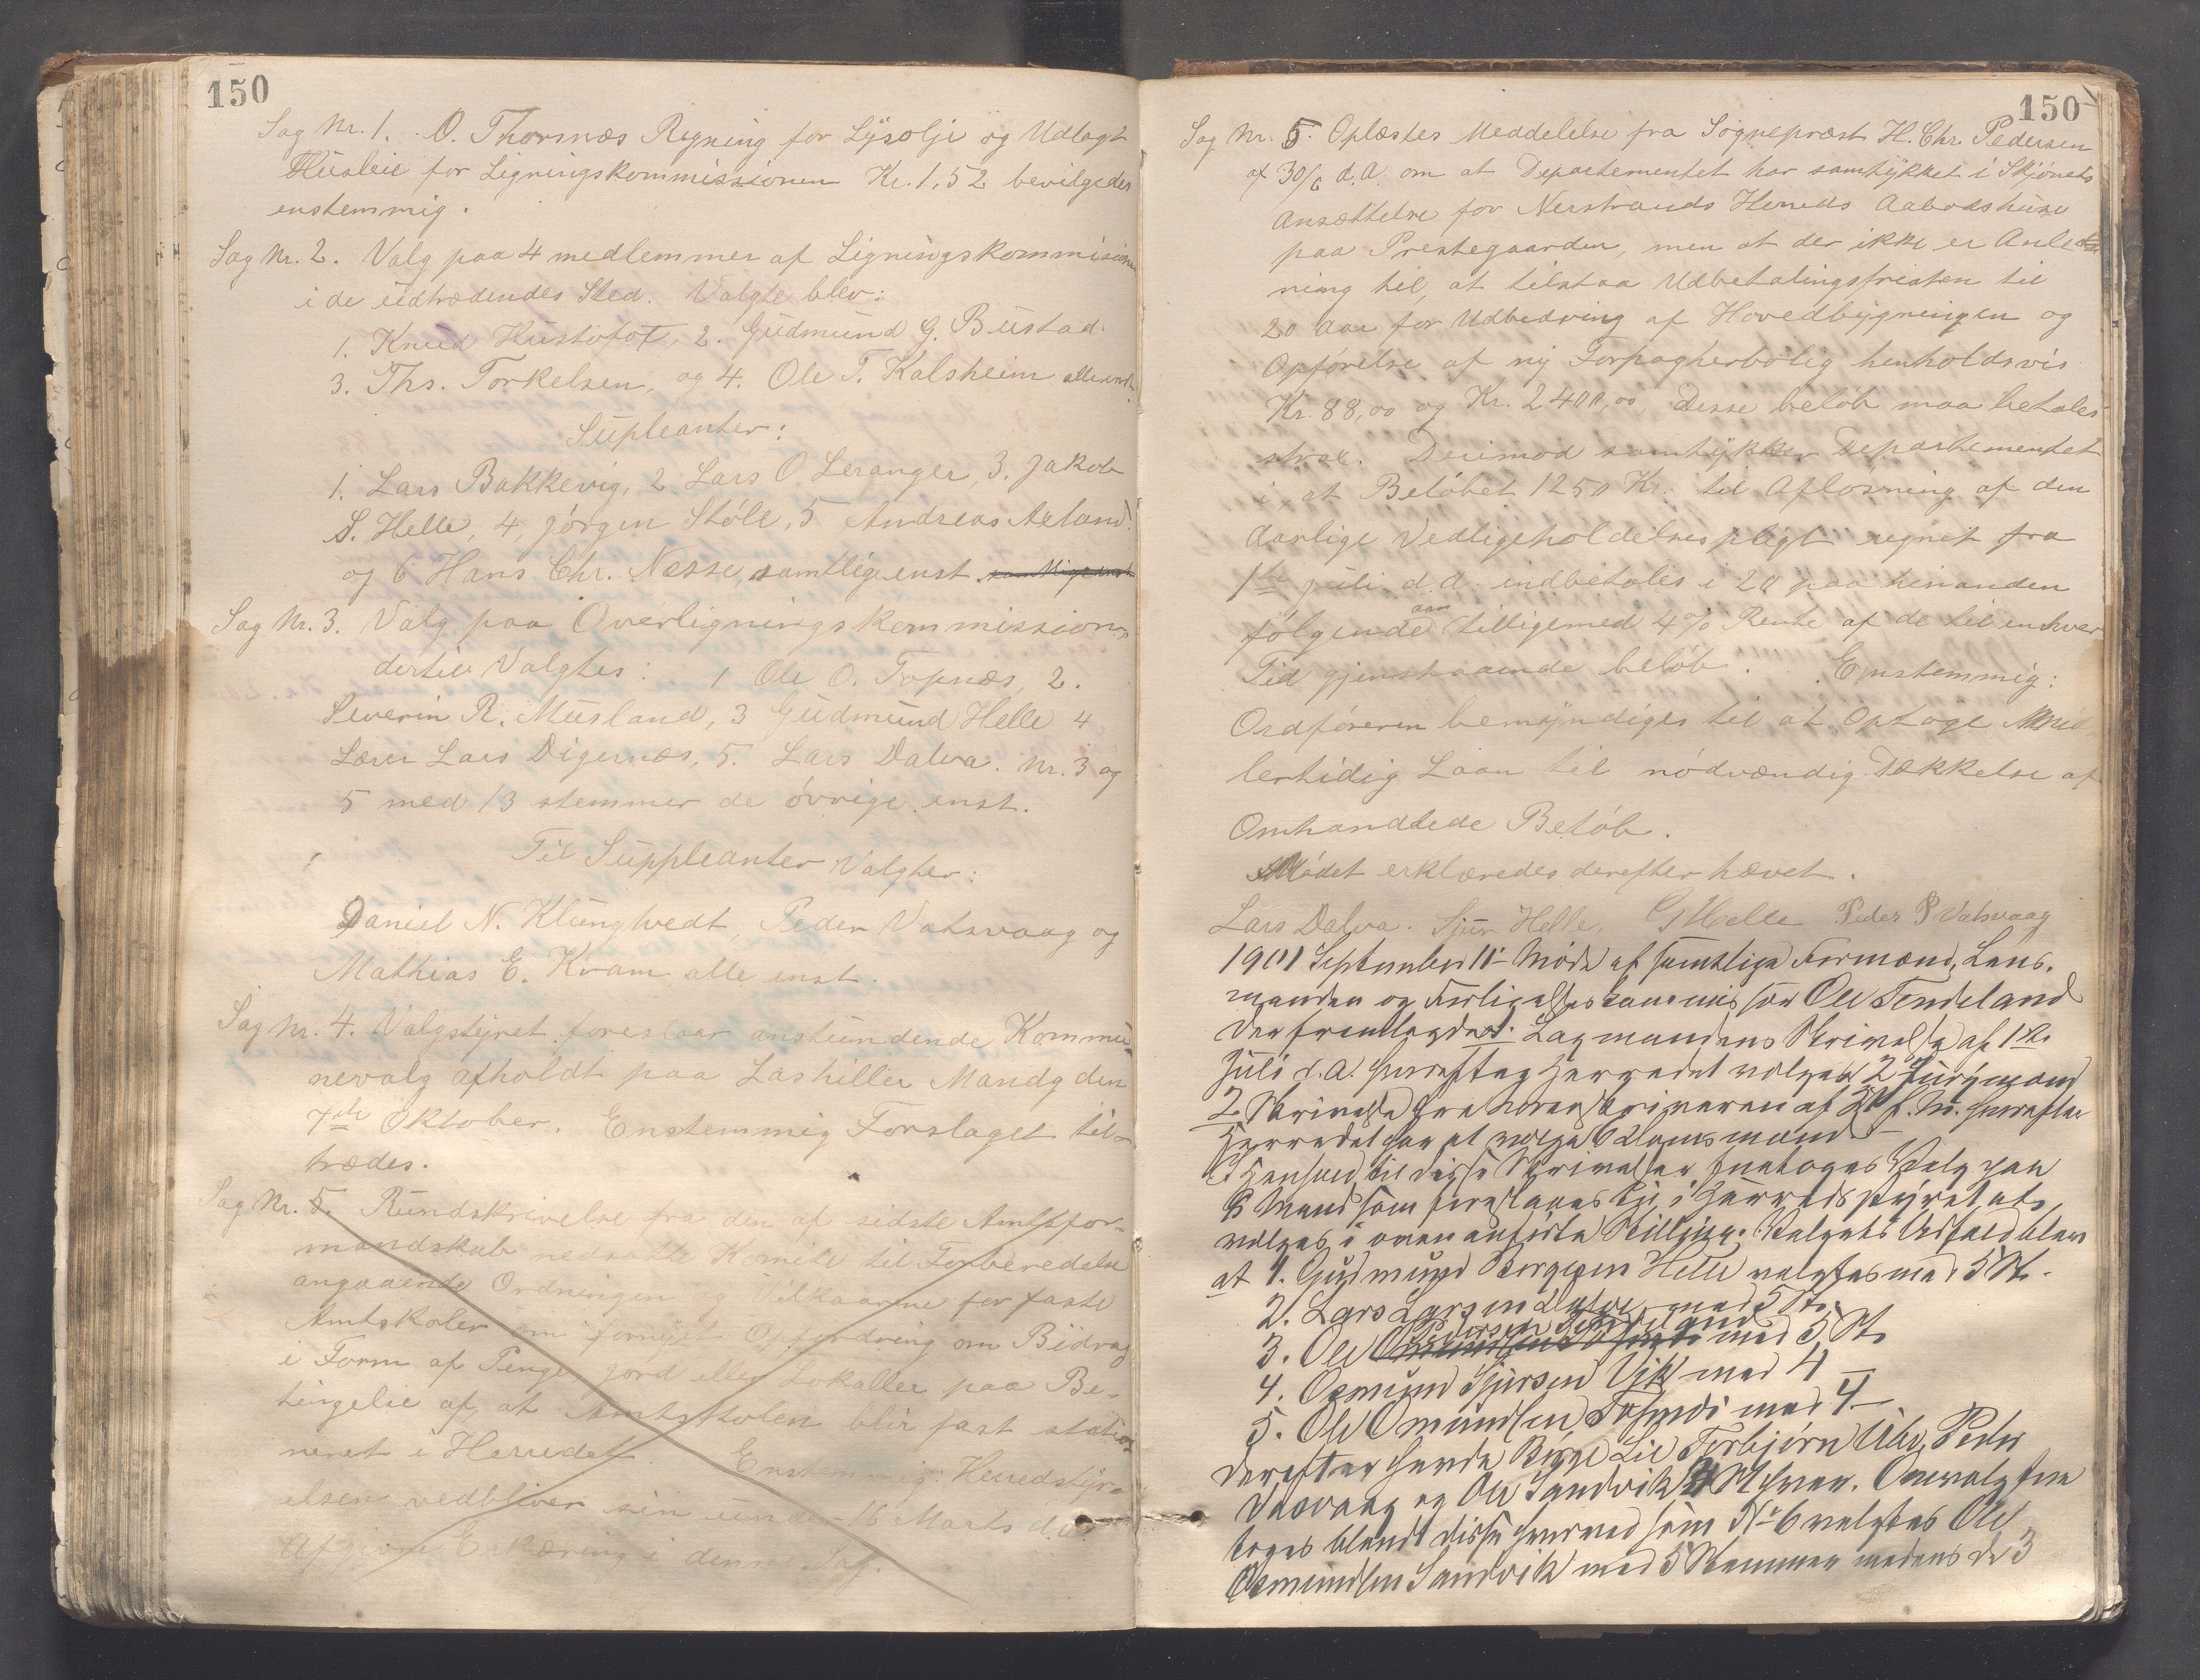 150
Sag Nr. 1. O. Thorsnæs Regning for Lysolje og Udlagt
Husleie for Ligningskommissionen Kr. 1,52 bevilgedes
enstemmig.
Sag Nr. 2. Valg paa 4 medlemmer af Ligningskommisionen
i de udtrædendes Sted. Valgte blev:
1. Knud Hustoft, 2. Gudmund G. Bustad
3. Ths. Torkelsen, og 4. Ole T. Kalsheim alle enst.
Supleanter:
1. Lars Bakkevig, 2 Lars O. Leranger, 3. Jakob
S. Helle, 4, Jørgen Støle, 5 Andreas Axland
og 6 Hans Chr. Nesse, samtlige enst. samtlige enst
Sag Nr. 3. Valg paa Overligningskommission,
dertil Valgtes: 1 Ole O. Topnæs, 2.
Severin R. Musland, 3 Gudmund Helle 4
Lærer Lars Digernæs, 5. Lars Dalva. Nr. 3 og
5 med 13 stemmer de øvrige enst.
Til Suppleanter Valgtes:
Daniel N. Klungtvedt, Peder Vatsvaag og
Mathias E. Kvam alle enst.
Sag Nr. 4. Valgstyret foreslaar anstundende Kommu-
nevalg afholdt paa Lashiller Mandg den
7de Oktober. Enstemmig Forslaget til-
trædes.
Sag Nr. 5. Rundskrivelse fra den af sidste Amtsfor-
mandskab nedsatte Komite til Forberedelse
angaaende Ordningen og Vilkaarene for faste
Amtskoler om fornyet Opfordring om Bidrag
i Form af Penge jord eller Lokaller paa Be-
tingelse af, at Amtsskolen blir fast statio-
neret i Herredet. Enstemmig: Herredstyr-
elsen vedbliver sin under 16 Marts d.a.
Afgivne Erklæring i denne Sag.
150
Sag Nr. 5. Oplæstes Meddelelse fra Sognepræst H. Chr. Pedersen
af 30/6 d.a. om at Departementet har samtykket i Skjønets
Ansættelse for Nerstrands Herreds Aabodshuse
paa Prestegaarden, men at der ikke er Anled-
ning til, at tilstaa Udbetalingsfristen til
20 Aar for Udbedring af Hovedbygningen og
Opførelse af ny Forpagterbolig henholdsvis
Kr. 88,00 og Kr. 2400,00, Disse beløb maa betales
strax. Derimod samtykker Departementet
i, at Beløbet 1250 Kr. til Afløsning af den
Aarlige Vedligeholdelsespligt regnet fra
1ste juli d.a. indbetales i 20 paa hinanden
følgende aar tilligemed 4% Rente af de til enhver
Tid gjenstaaende beløb. Enstemmig:
Ordføreren bemyndiges til at Optage Mid-
lertidig Laan til nødvændig Dækkelse af
Omhandlede Beløb.
Mødet erklæredes derefter hævet.
Lars Dalva. Sjur Helle, G Helle Peder P Vatsvaag
1901 September 11 Møde af samtlige Formænd, Lens-
manden og Forligelseskommissær Ole Tendeland
Der fremlagdes 1. Lagmandens Skrivelse af 1ste
Juli d.a. hvorefter Herredet vælger 2 Jurymænd
2 Skrivelse fra Sorenskriveren af f.M. hvorefter
Herredet har at vælge 6 Domsmænd
I Henhold til disse Skrivelser foretoges Valg paa
6 Mænd som foreslaaes til i Herredsstyret at
vælges i ovenanførte Stilling. Valgets Udfald blev
at 1. Gudmund Børgesen Helle valgtes med 5 St.
2. Lars Larsen Dalva med 5 St.
Pedersen Tendeland
3. Ole med 5 St.
4. Osmund Sjursen Vik med 4 —
5. Ole Omundsen med 4 —
derefter havde Børge Lie Torbjørn Peder
Vasvaag og Ole Sandvik St hver. Omvalg fore
toges blandt disse hvorved som No 6 valgtes Ole
Osmundsen Sandvik med 5 Stemmer medens de 3